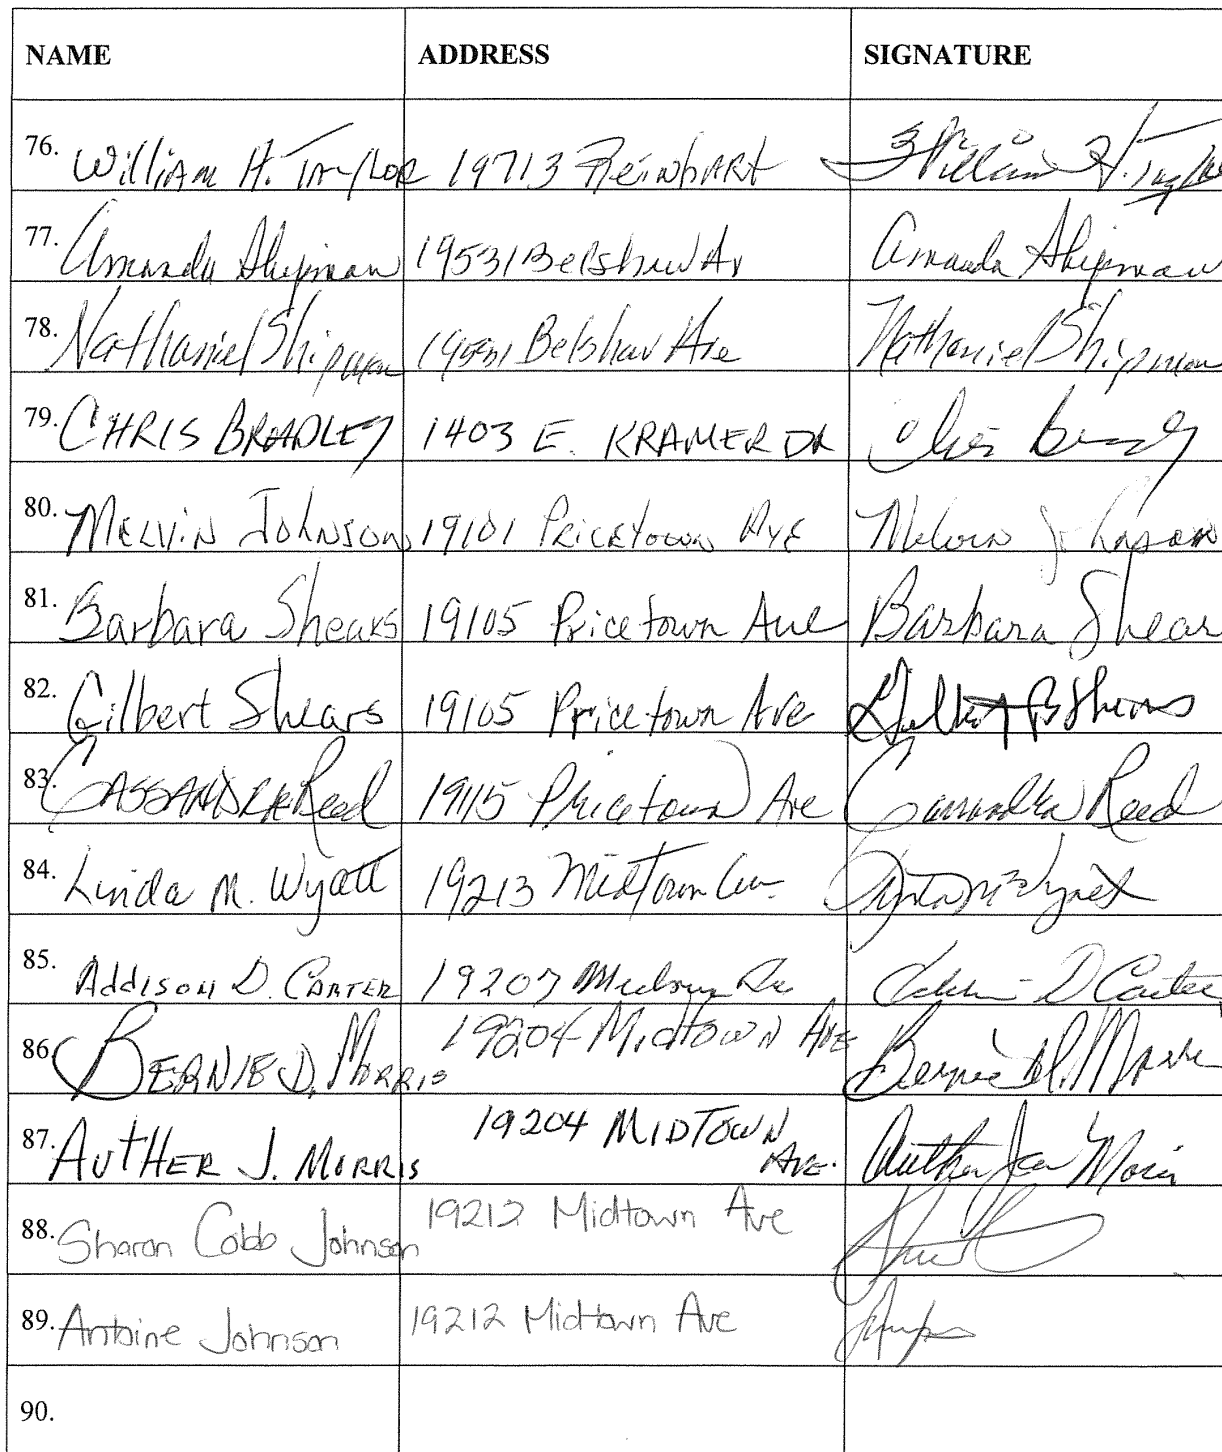 NAME ADDRESS SIGNATURE
76. William H. Taylor 19713 Reinhart William H. Taylor
77. Amanda Shipman 19531 Belshaw Av Amanda Shipman
78. Nathaniel Shipman 19531 Belshaw Ave Nathaniel Shipman
79. CHRIS BRADLEY 1403 E. KRAMER DR Chris
80. MELVIN JOHNSON 19101 Pricetown AVE Melvin Johnson
81. Barbara Shears 19105 Pricetown Ave Barbara Shears
82. Gilbert Shears 19105 Pricetown Ave Gilbert B Shears
83. CASSANDRA Reed 19115 Pricetown Ave Cassandra Reed
84. Linda M. Wyatt 19213 Midtown Ave.
85. Addison D. CARTER 19207 D Carter
86. BERNIE D. MORRIS 19204 MidTOWN AVE Bernie D. Morris
87. AUTHER J. MORRIS 19204 MIDTOWN AVE. Auther
88. Sharon Cobb Johnson 19212 Midtown Ave
89. Antoine Johnson 19212 Midtown Ave
90.